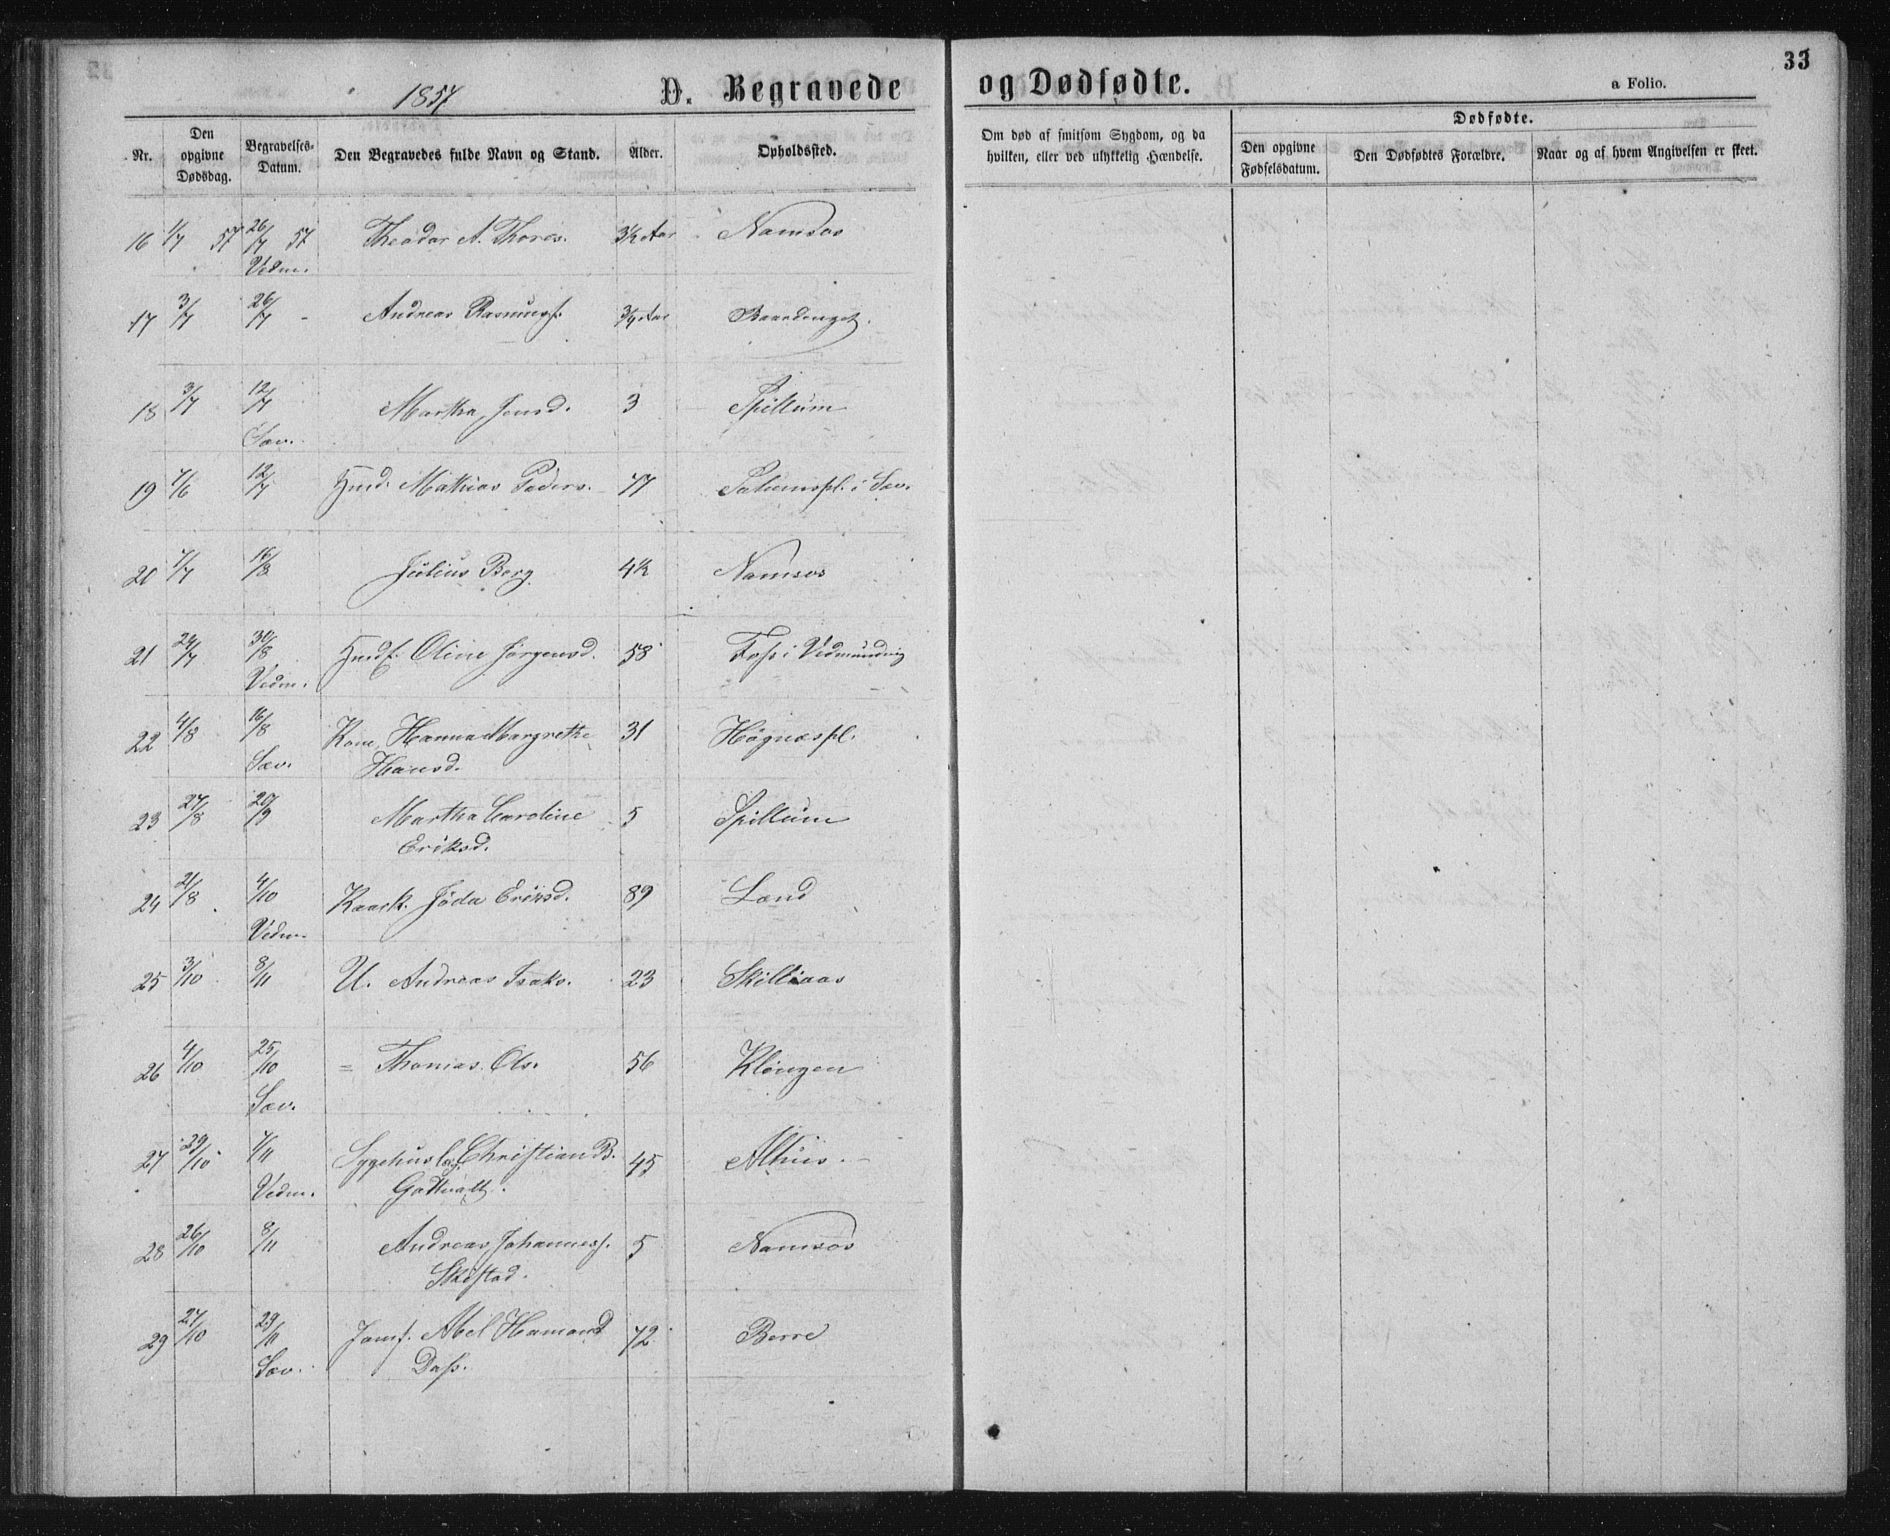 33
1857
D. Begravede og Dødfødte.
a Folio.
Nr.
Den opgivne Dødsdag.
Begravelses-Datum.
Den Begravedes fulde Navn og Stand.
Alder.
Opholdssted.
Om død af smitsom Sygdom, og da hvilken, eller ved ulykkelig Hændelse.
Dødfødte.
Den opgivne Fødselsdatum.
Den Dødfødtes Forældre.
Naar og af hvem Angivelsen er skeet.
16 1/7 57 26/7 57 Theodor A. Thores. 3½ Aar Namsos
Vedm.
17 3/7 26/7 - Andreas Rasmuss. ¾ Aar
18 3/7 12/7 Martha Jensd. 3 Spillum
Sæv.
19 7/6 12/7 Hmd. Mathias Peders. 77 i Sæv.
20 7/7 16/8 Julius Berg 4½ Namsos
21 24/7 30/8 Oline Jørgensd. 58 Foss i Vedmundvig
Vedm.
22 4/8 16/8 Kone Hanna Margrethe 31 Høgnæspl.
Sæv. Hansd.
23 27/8 20/9 Martha Caroline 5 Spillum
Eriksd.
24 21/8 4/10 Eriksd. 89 Lænd
Vedm.
25 3/10 8/11 U. Andreas Isaks. 23
26 4/10 25/10 = Thomas Ols. 56 Klingen
Sæv.
27 29/10 1/11 Christian B. 45
Vedm.
28 26/10 8/11 Andreas Johanness. 5 Namsos
29 27/10 29/11 Jomf. Abel Hamond 72 Berre
Sæv. Dass.